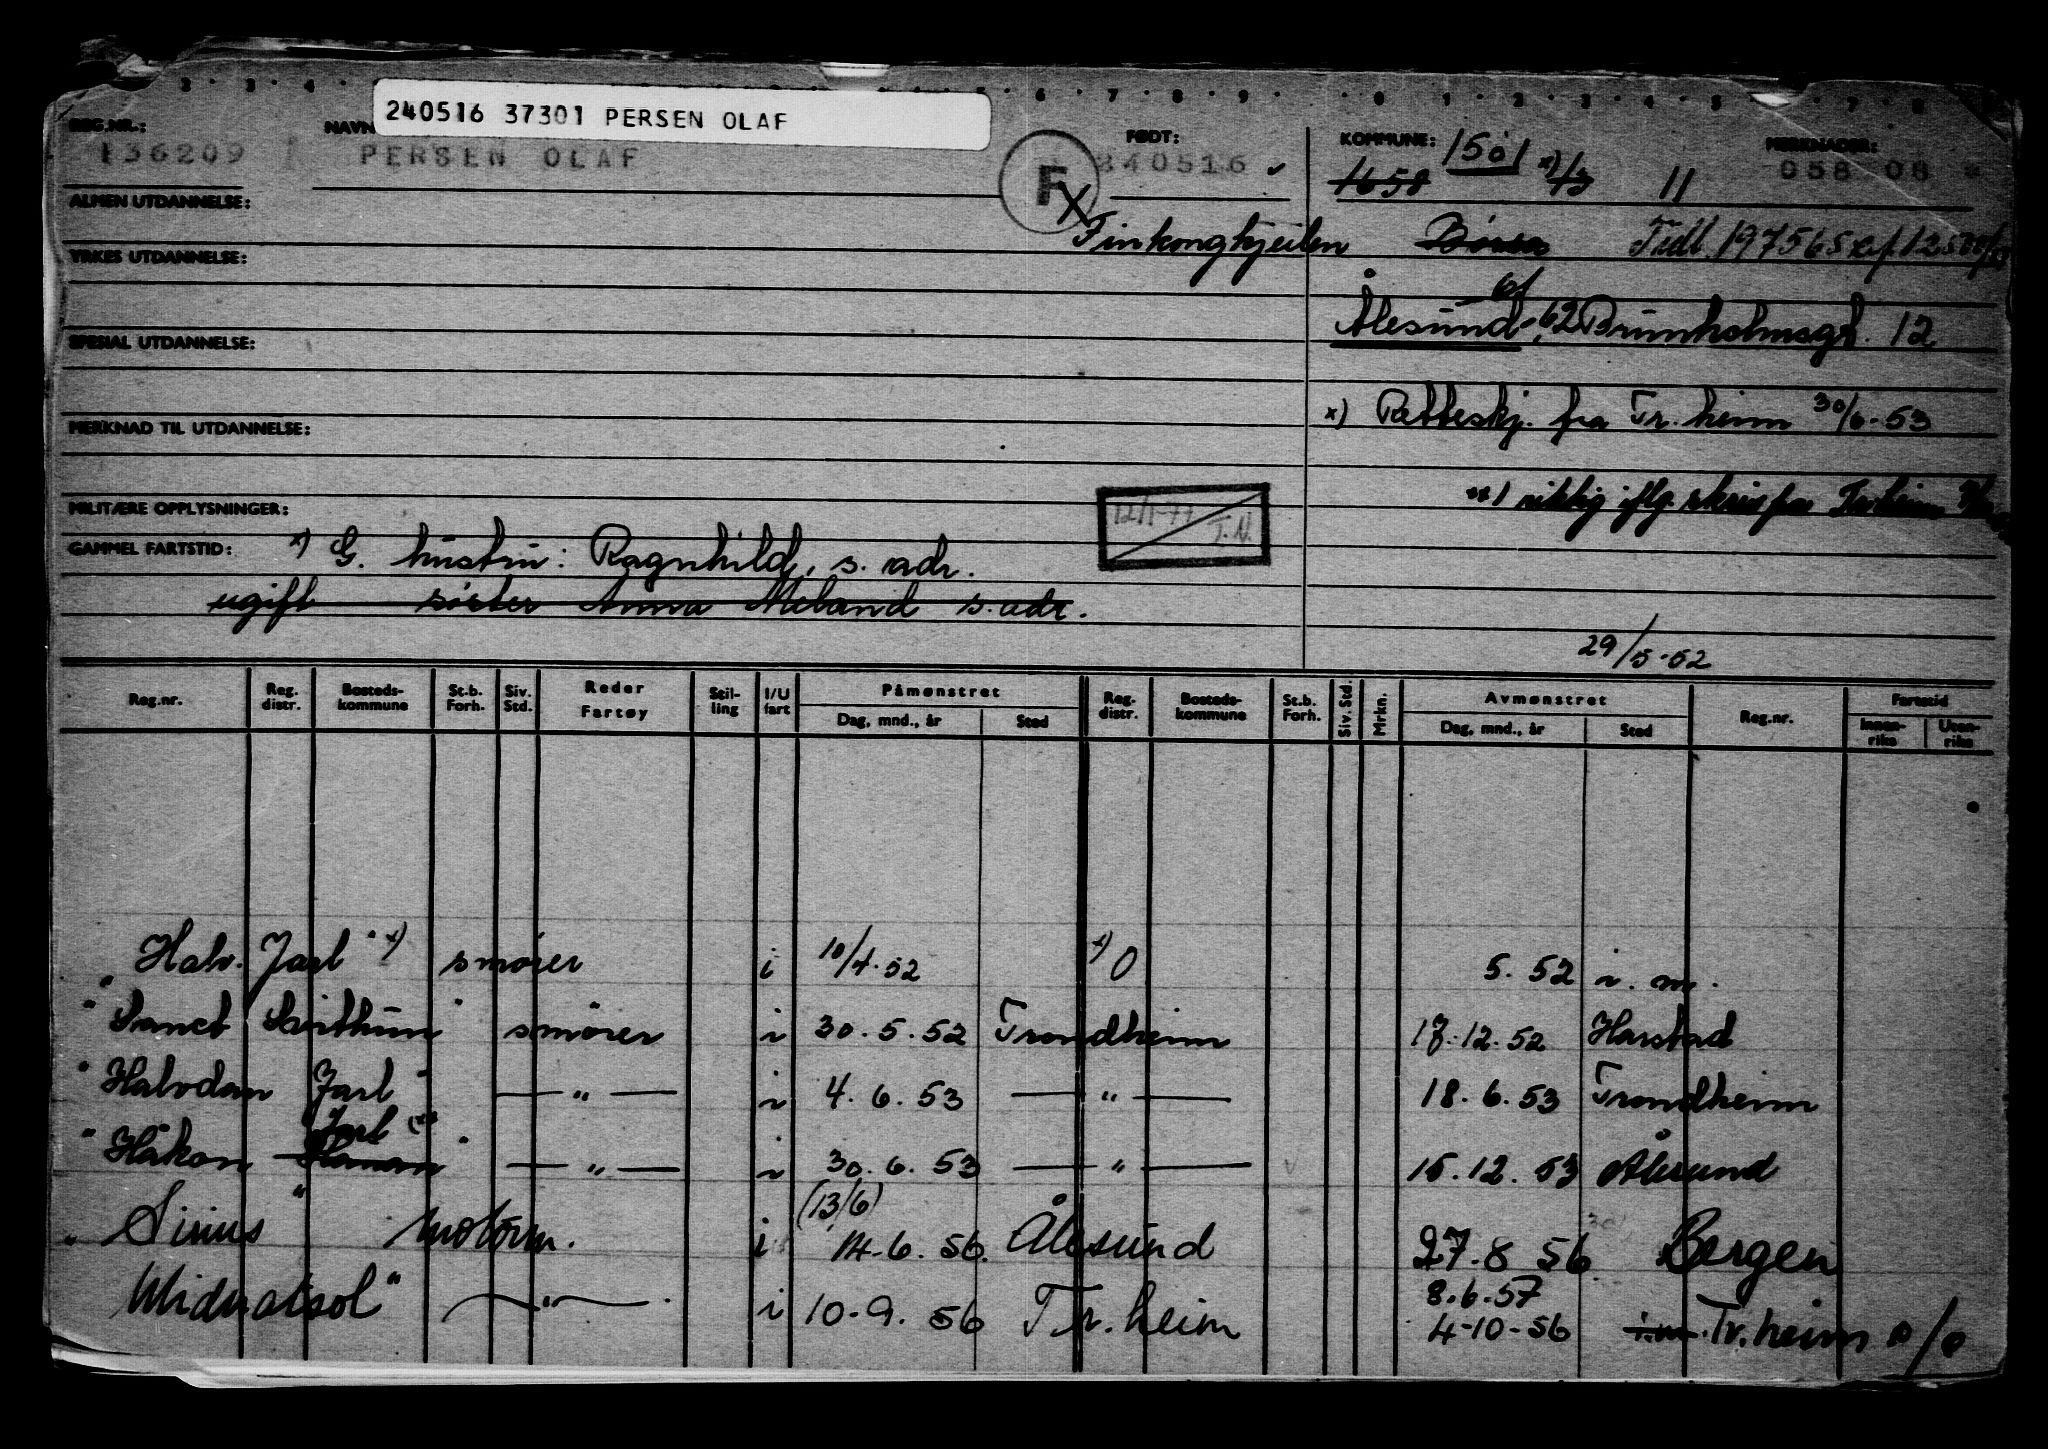 240516 37301 PERSEN OLAF
REG.NR.: NAVN FØDT: KOMMUNE: 1501 MERKNADER:
136209 PERSEN OLAF F 240516 1658 x) 13 11 058 08
ALMEN UTDANNELSE:
x Finkongkjeilen Børsa Tidl. 197565
YRKES UTDANNELSE:
Ålesund, 62 Brunholmsgt. 12
SPESIAL UTDANNELSE:
x) Retteskj. fra Tr.heim 30/6-53
MERKNAD TIL UTDANNELSE:
riktig iflg. skriv fra Tr.heim
MILITÆRE OPPLYSNINGER: T.N.
GAMMEL FARTSTID: x) G. hustru: Ragnhild, s. adr.
ugift søster Anna Meland s. adr.
29/5-52
Reg.nr. Reg. distr. Bosteds-kommune St.b. Forh. Siv. Std. Reder Fartøy Stil-ling I/U fart Påmønstret Reg. distr. Bosteds-kommune St.b. Forh. Siv. Std. Mrkn. Avmønstret Reg.nr. Fartstid
Dag, mnd., år Sted Dag, mnd., år Sted Innen-riks Uten-riks
" Halv. Jarl " x) smører i 10/4-52 x) 0 5. 52 i. m.
" Sanct Svithun " smører i 30.5.52 Trondheim 17.12.52 Harstad
" Halvdan Jarl " — " — i 4.6.53 — " — 18.6.53 Trondheim
Jarl
" Håkon " — " — i 30.6.53 — " — 15.12.53 Ålesund
(13/6)
" Sirius " motorm. i 14.6.56 Ålesund 27.8 56 Bergen
8.6.57
Midnatsol " — " — i 10-9. 56 Tr.heim 4-10-56 i.m. Tr.heim o/o